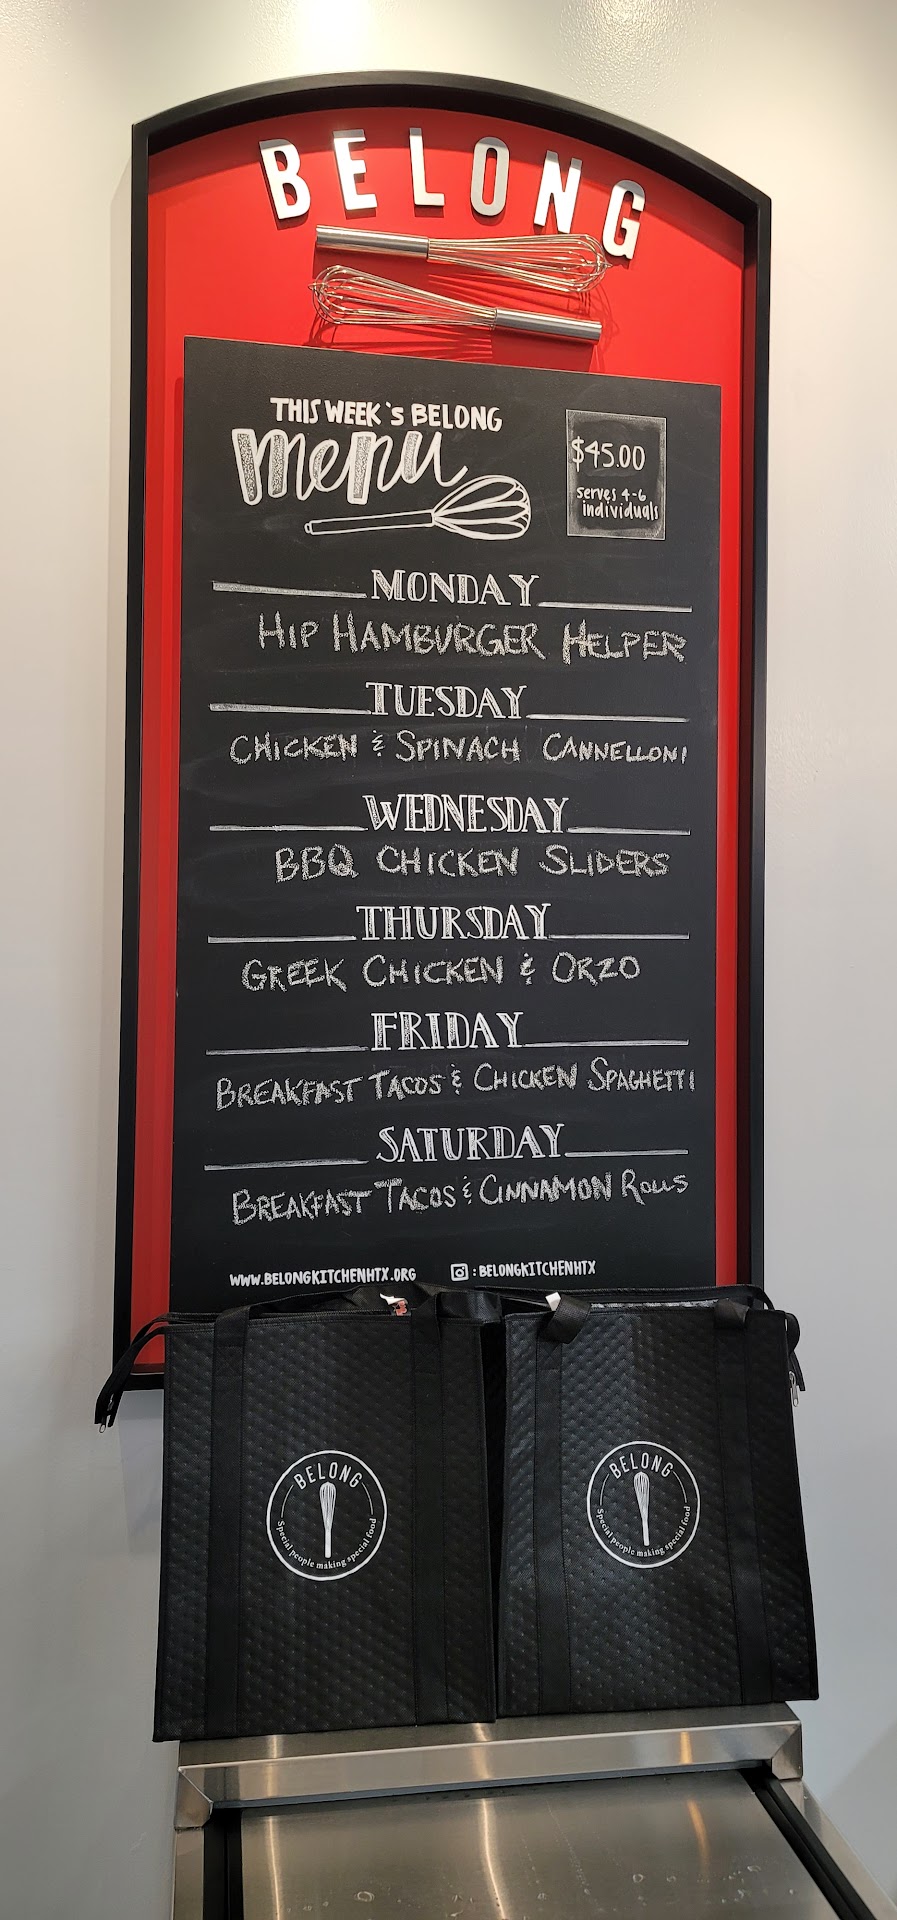 BELONG
THIS WEEK'S BELONG
menu
$45.00
serves 4-6
individuals
MONDAY
HIP HAMBURGER HELPER
TUESDAY
CHICKEN & SPINACH CANNELLONI
WEDNESDAY
BBQ CHICKEN SLIDERS
THURSDAY
GREEK CHICKEN & ORZO
FRIDAY
BREAKFAST TACOS & CHICKEN SPAGHETTI
SATURDAY
BREAKFAST TACOS & CINNAMON ROLLS
WWW.BELONGKITCHENHTX.ORG
: BELONGKITCHENHTX
BELONG
Special people making special food
BELONG
Special people making special food